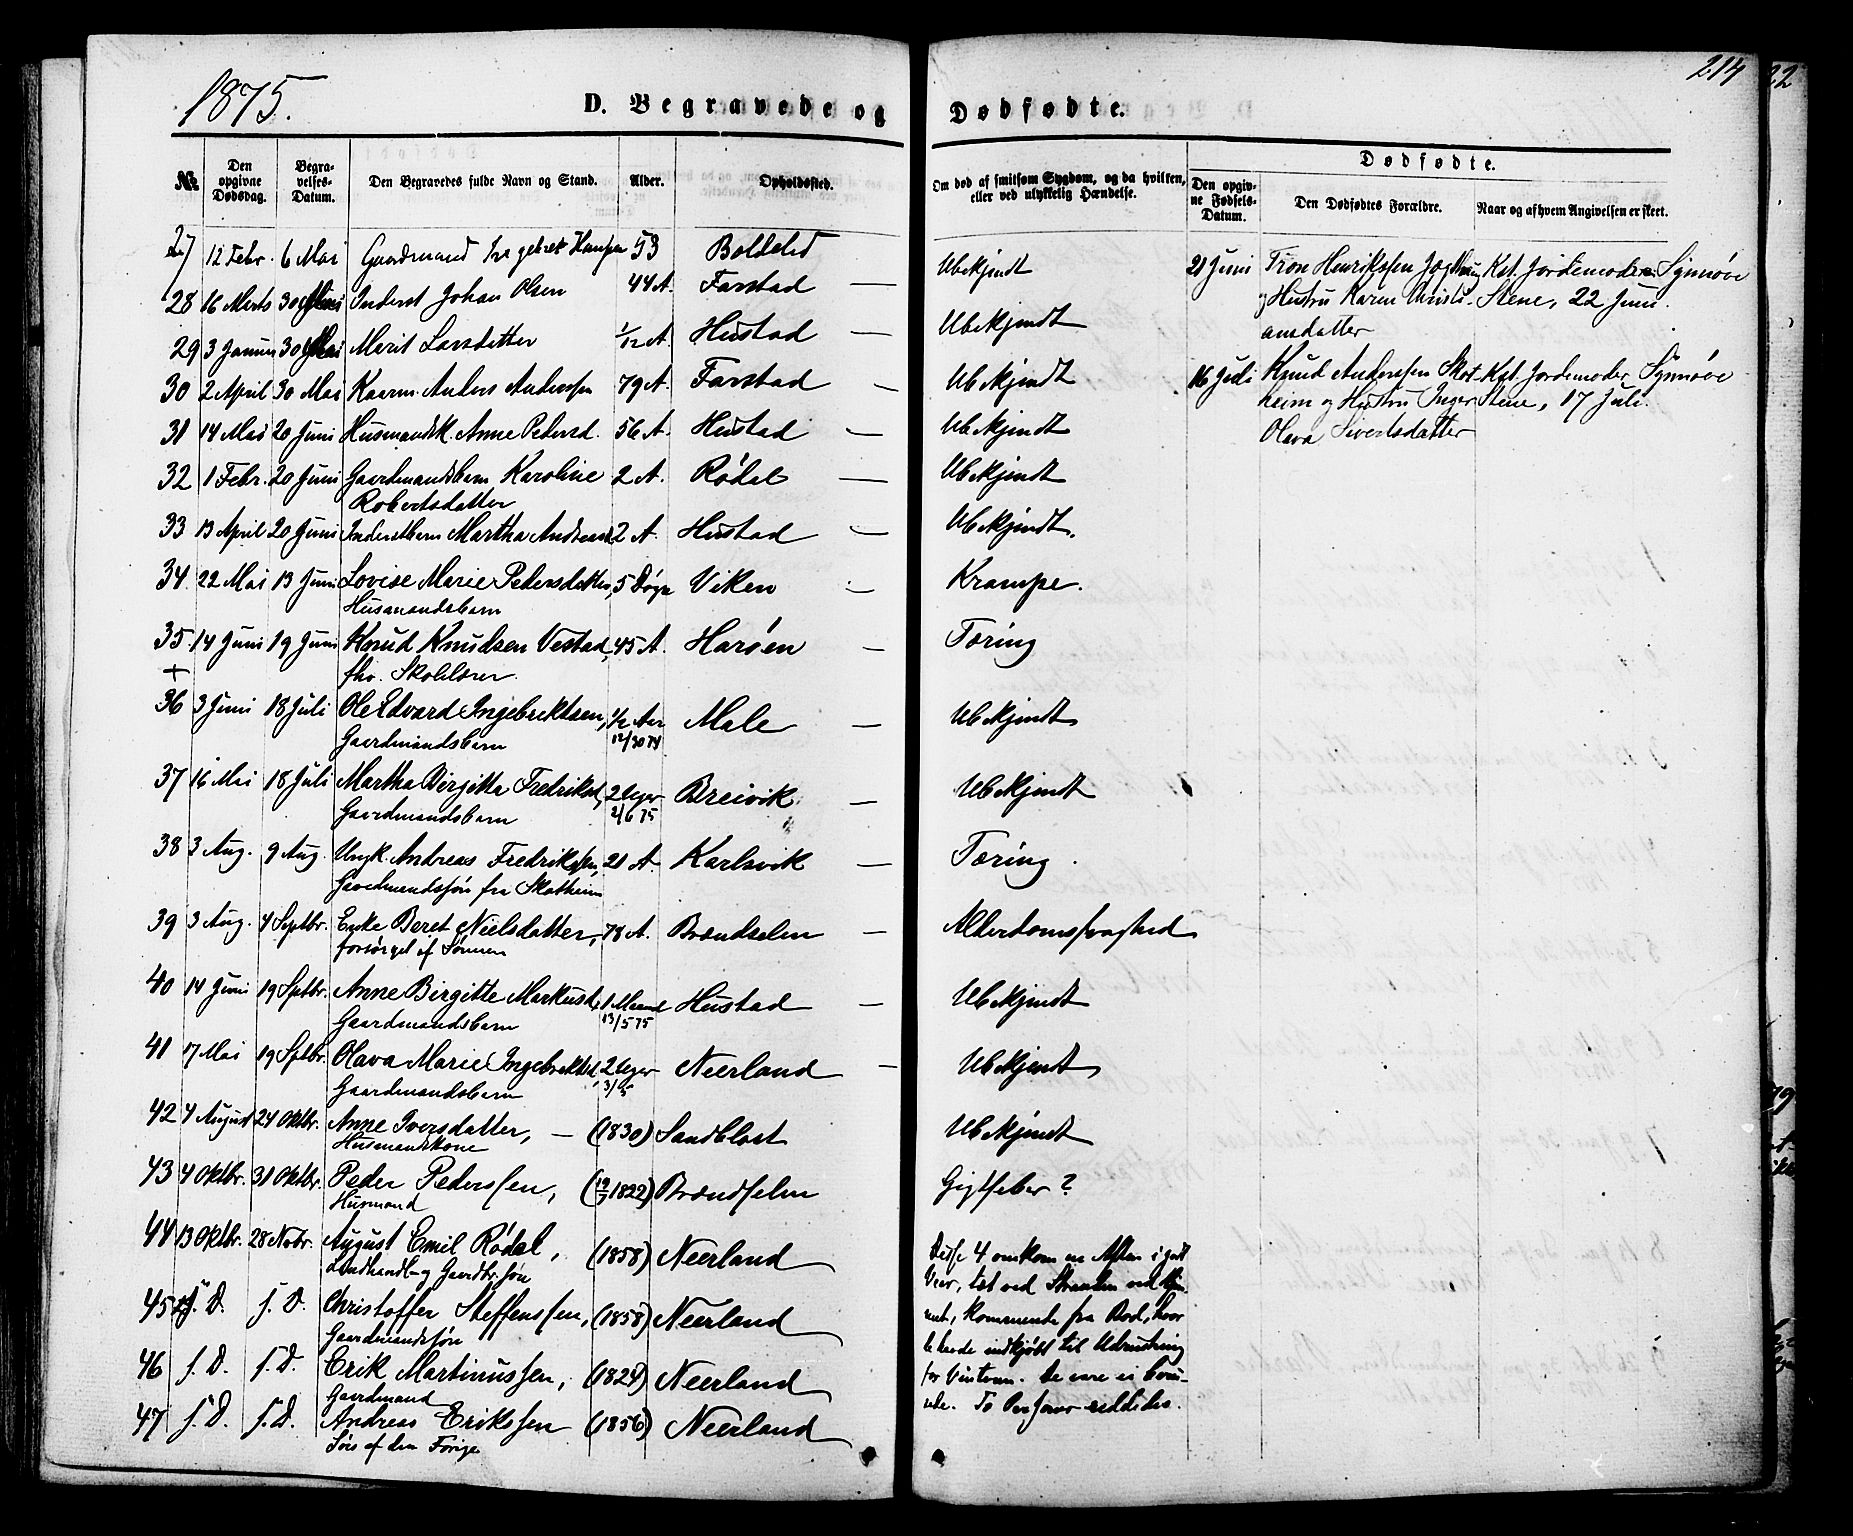 1875.
214
D. Begravede og Dødfødte.
№ | Den opgivne Dødsdag. | Begravelses-Datum. | Den Begravedes fulde Navn og Stand. | Alder. | Opholdssted. | Om død af smitsom Sygdom, og da hvilken, eller ved ulykkelig Hændelse. | Den opgivne Fødsels-Datum. | Dødfødte. Den Dødfødtes Forældre. | Naar og af hvem Angivelsen er skeet.
27 12 Febr. 6 Mai Gaardmand 53 Ubekjendt 21 Juni Tron Henriksen Kst. Jordemoder Synnøve
28 16 Marts 30 Mai Inderst Johan Olsen 44 A. Farstad — Ubekjendt og Hustru Karen Stene, 22 Juni.
ansdatter
29 3 Januar 30 Mai Marit Larsdatter 1/12 A. Hustad —
30 2 April 30 Mai Kaarm. Anders Anderssen 79 A. Farstad — Ubekjendt 16 Juli Knud Anderssen Skot- Kst. Jordemoder Synnøve
heim og Hustru Inger Stene, 17 Juli.
Olava Sivertsdatter
31 14 Mai 20 Juni Husmandsk. Anne Pedersd. 56 A. Hustad — Ubekjendt
32 1 Febr. 20 Juni Gaardmandsbarn Karoline 2 A. Rødal — Ubekjendt
Robertsdatter
33 13 April 20 Juni Inderstbarn Martha 2 A. Hustad — Ubekjendt.
34. 22 Mai 13 Juni Lovise Marie Pedersdatter, 5 Døgn Viken — Krampe.
Husmandsbarn
35 14 Juni 19 Juni Knud Knudsen Vestad, 45 A. Harøen — Tæring
+ fhv. Skolelærer.
36 3 Juni 18 Juli Ole Edvard Ingebrektsen, 1/2 Aar Male — Ubekjendt
Gaardmandsbarn 12/30 74
37 16 Mai 18 Juli Martha Birgitta Fredriksd., 2 Uger Breivik — Ubekjendt
Gaardmandsbarn 2/6 75
38 3 Aug. 9 Aug. Ungk. Andreas Fredrikssen, 21 A. Karlsvik — Tæring.
Gaardmandssøn fra Skotheim
39 3 Aug. 4 Septbr. Enke Beret Nielsdatter, 78 A. Brændselen — Alderdomssvaghed
forsørget af Sønnen
40 14 Juni 19 Septbr. Anne Birgitte Markusd., 1 Maaned Hustad — Ubekjendt
Gaardmandsbarn 13/5 75
41 17 Mai 19 Sptbr. Olava Marie Ingebrektsd., 2 Uger Neerland — Ubekjendt
Gaardmandsbarn 3/5
42 4 August 24 Oktbr. Anne Iversdatter, — (1830) Sandblost Ubekjendt
Husmandskone
43 4 Oktbr. 31 Oktbr. Peder Pederssen, (1822) Brændselen Gigtfeber?
Husmand
44 13 Oktbr. 28 Novbr. August Emil Rødal, (1858) Neerland
Landhandl- og Gaardbr. søn
45 s. D. s. D. Christoffer Steffenssen, (1858) Neerland
Gaardmandssøn
46 s. D. s. D. Erik Martinussen, (1824) Neerland
Gaardmand
47 s. D. s. D. Andreas Erikssen (1856) Neerland
Søn af den Forige
Disse 4 omkom en Aften i godt
Veir, tæt ved Stranden ved
kommende fra Bod, hvor
de havde indkjøbt til Udrustning
for Vinteren. De vare ei
To Personer reddedes.